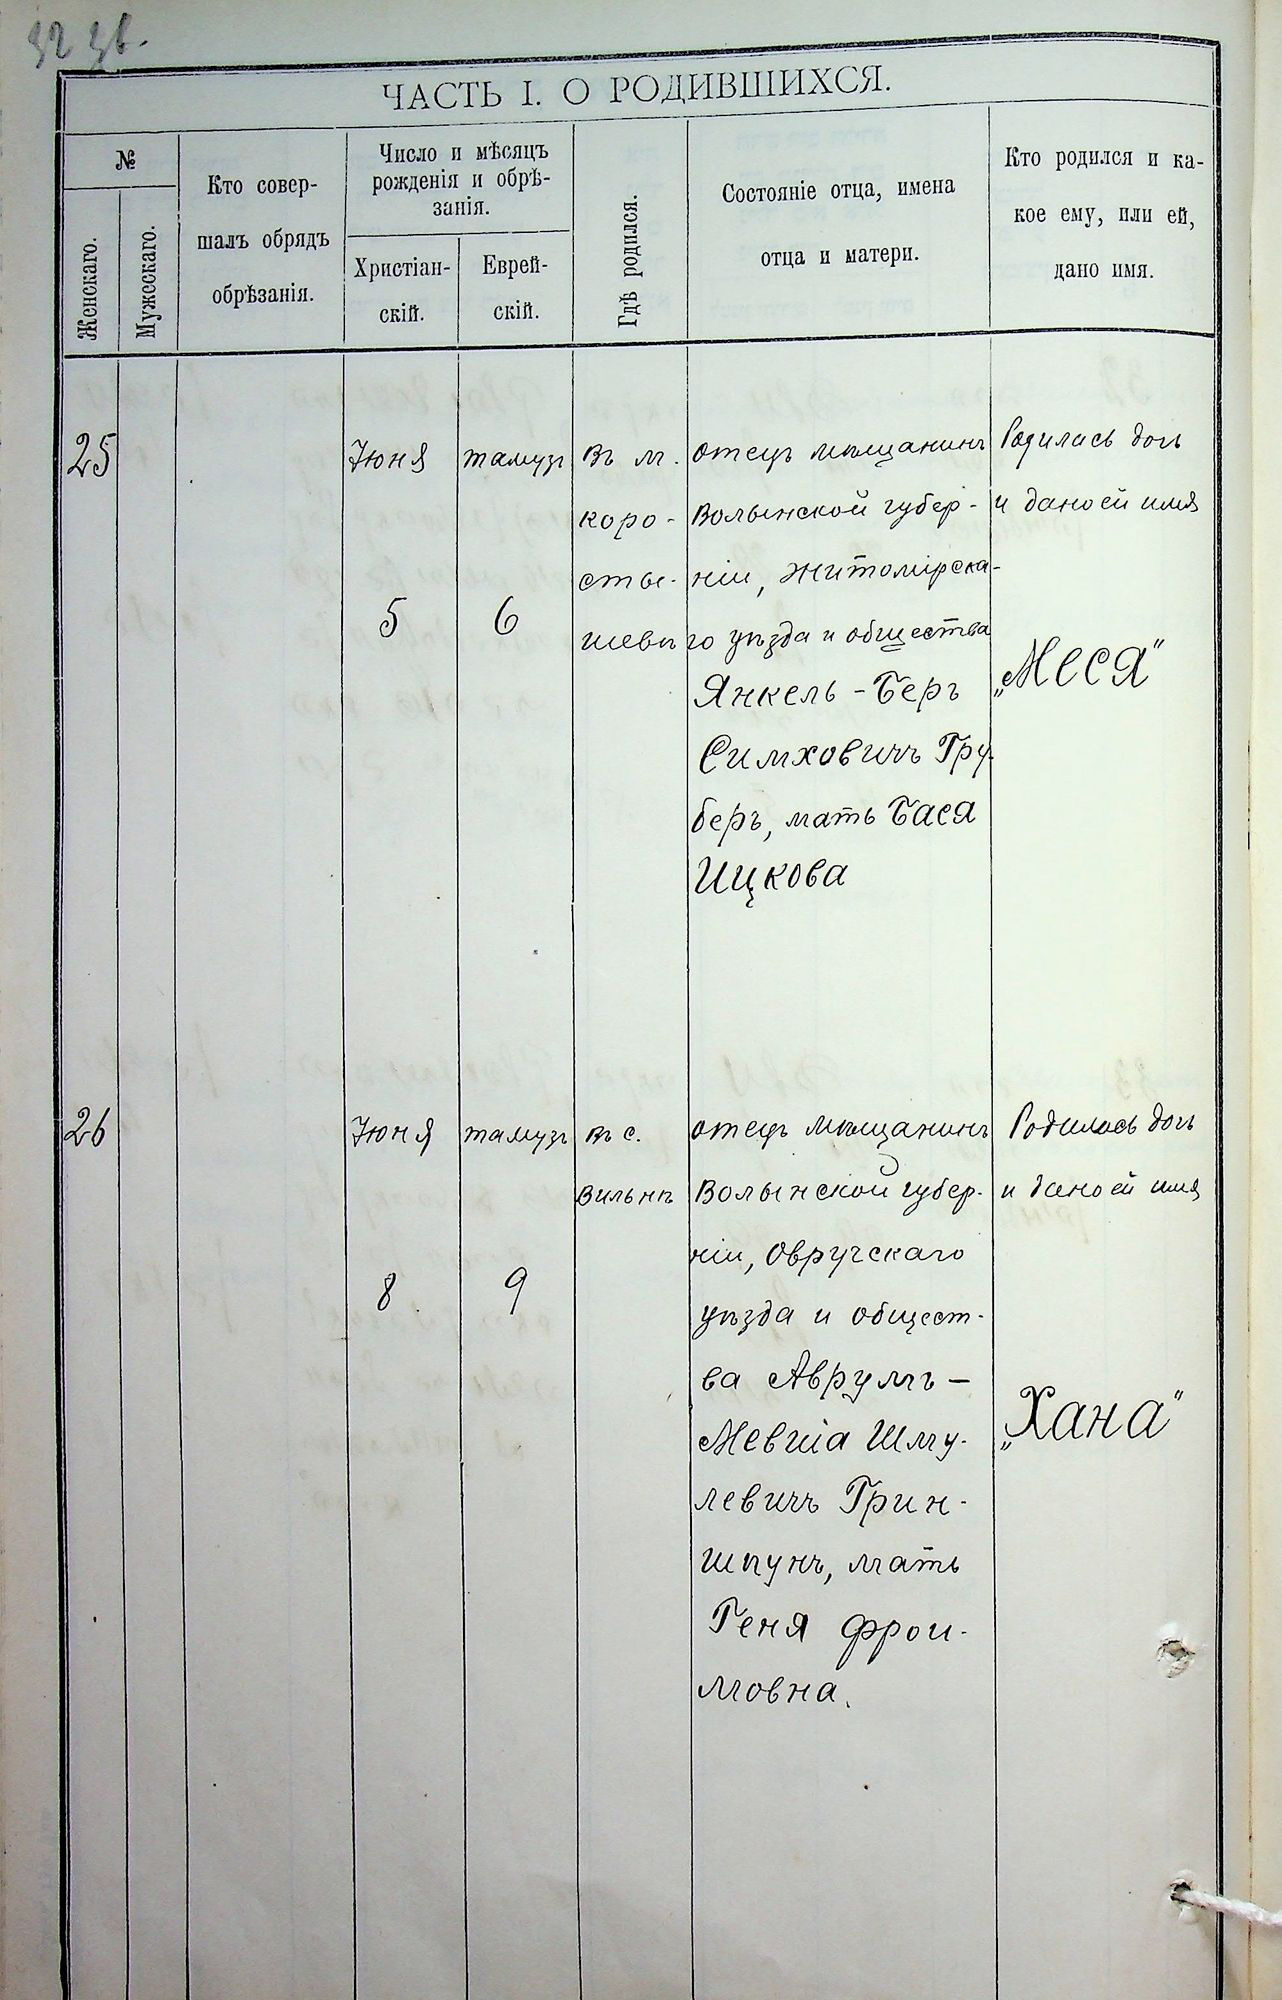 32 зв.
ЧАСТЬ I. О РОДИВШИХСЯ.
№
Женскаго.
Мужескаго.
Кто совер-
шалъ обрядъ
обрѣзанія.
Число и мѣсяцъ
рожденія и обрѣ-
занія.
Христіан-
скій.
Еврей-
скій.
Гдѣ родился.
Состояніе отца, имена
отца и матери.
Кто родился и ка-
кое ему, или ей,
дано имя.
25
Іюня
5
тамузъ
6
въ м.
коро-
сты-
шевѣ
отецъ мѣщанинъ
Волынской губер-
ніи, житомірска-
го уѣзда и общества
Янкель-Беръ
Симховичъ Гру-
беръ, мать Бася
Ицкова
Родилась дочь
и дано ей имя
„Меся"
26
Іюня
8
тамузъ
9
въ с.
вильнѣ
отецъ мѣщанинъ
Волынской губер-
ніи, Овручскаго
уѣзда и общест-
ва Аврумъ-
Мевшіа Шму-
левичъ Грин-
шпунъ, мать
Геня фрои-
мовна.
Родилась дочь
и дано ей имя
„Хана"